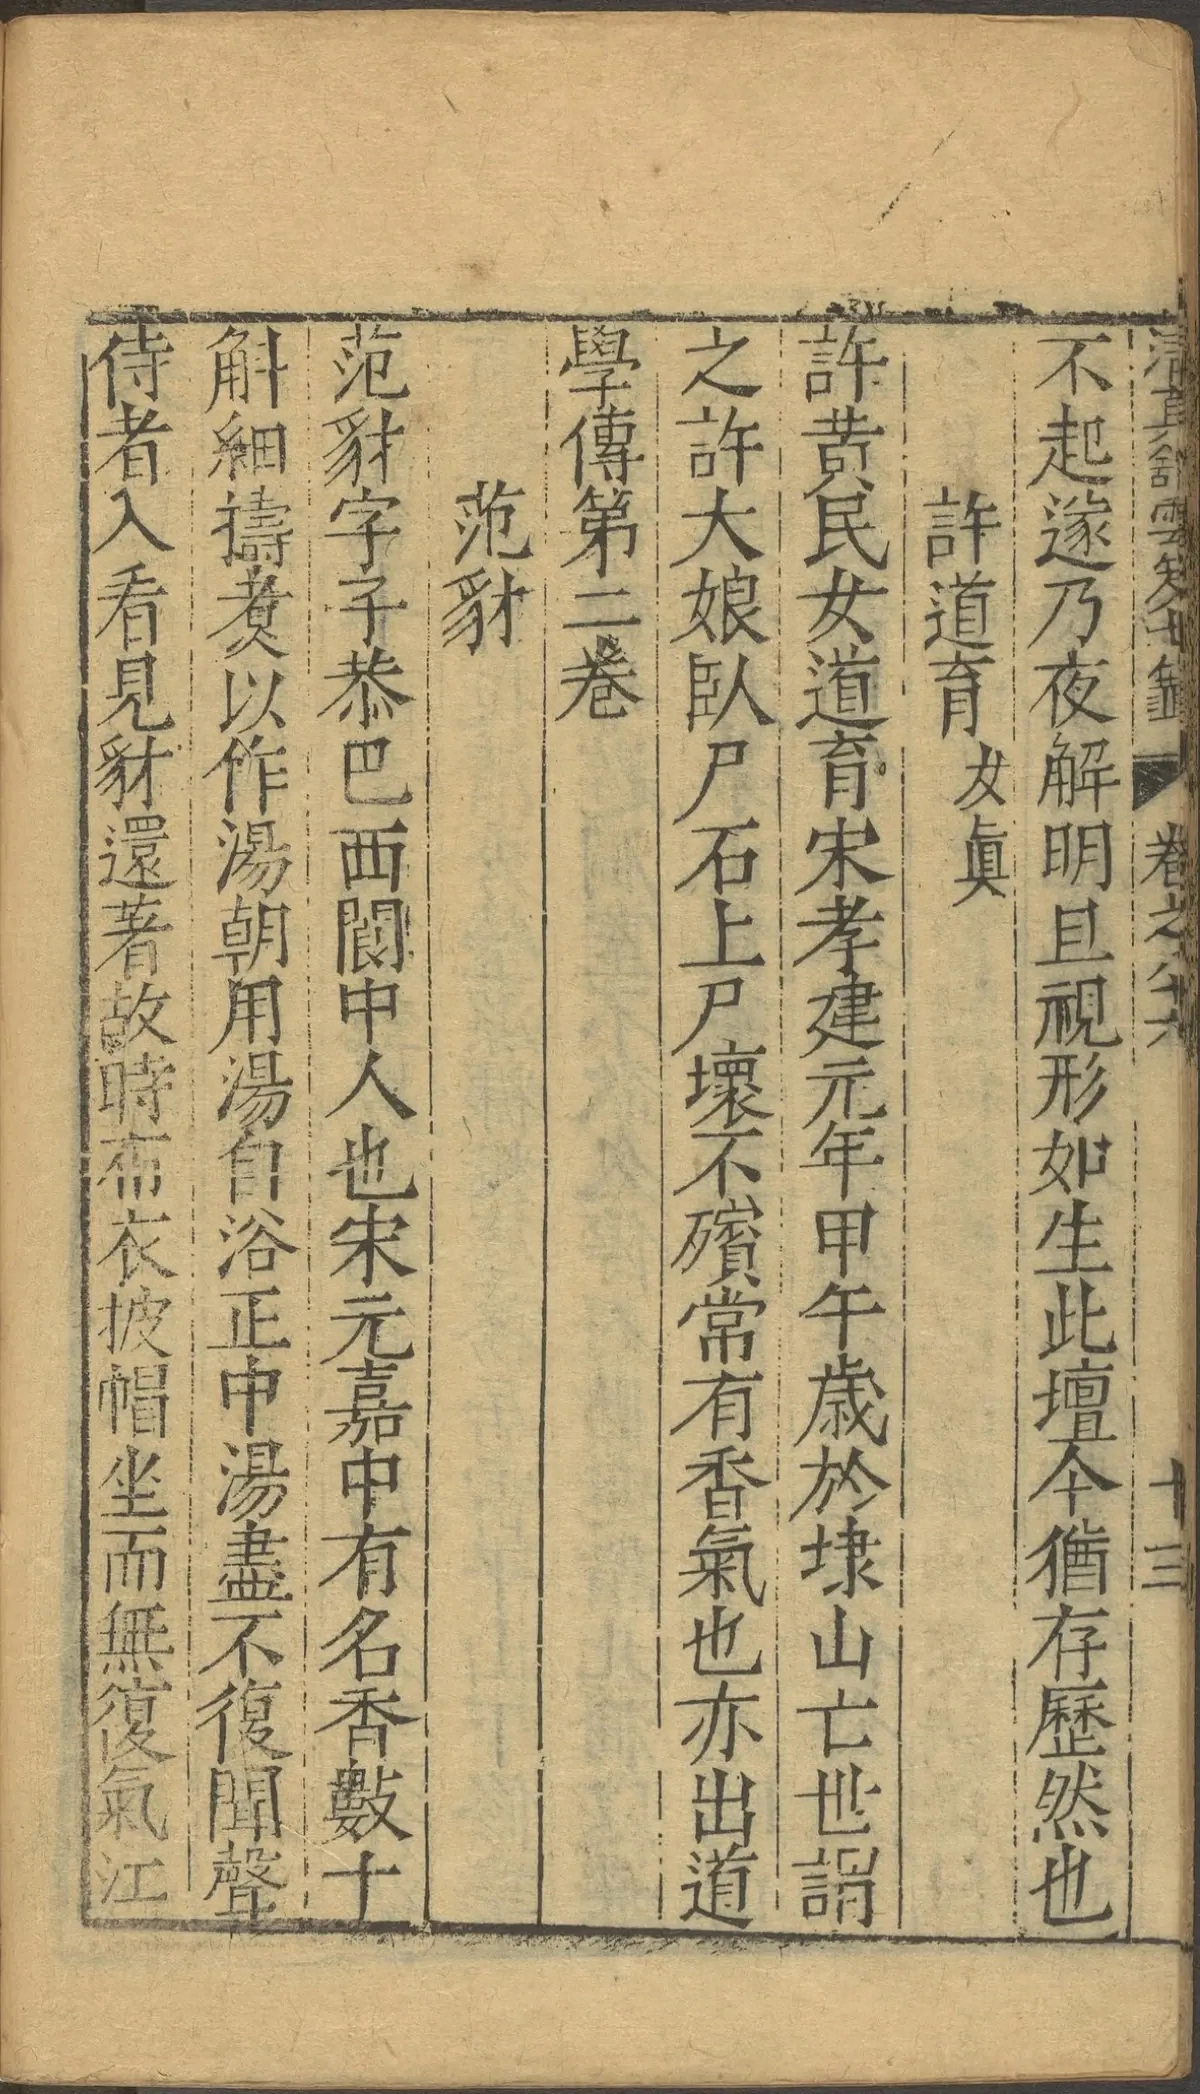 清真館雲笈七籤 卷之八十六 十三
不起遂乃夜解明旦視形如生此壇今猶存歷然也
許道育 女真
許黃民女道育宋孝建元年甲午歲於埭山亡世謂
之許大娘臥尸石上尸壞不殯常有香氣也亦出道
學傳第二卷
范豺
范豺字子恭巴西閬中人也宋元嘉中有名香數十
斛細擣煑以作湯朝用湯自浴正中湯盡不復聞聲
侍者入看見豺還著故時布衣披帽坐而無復氣江